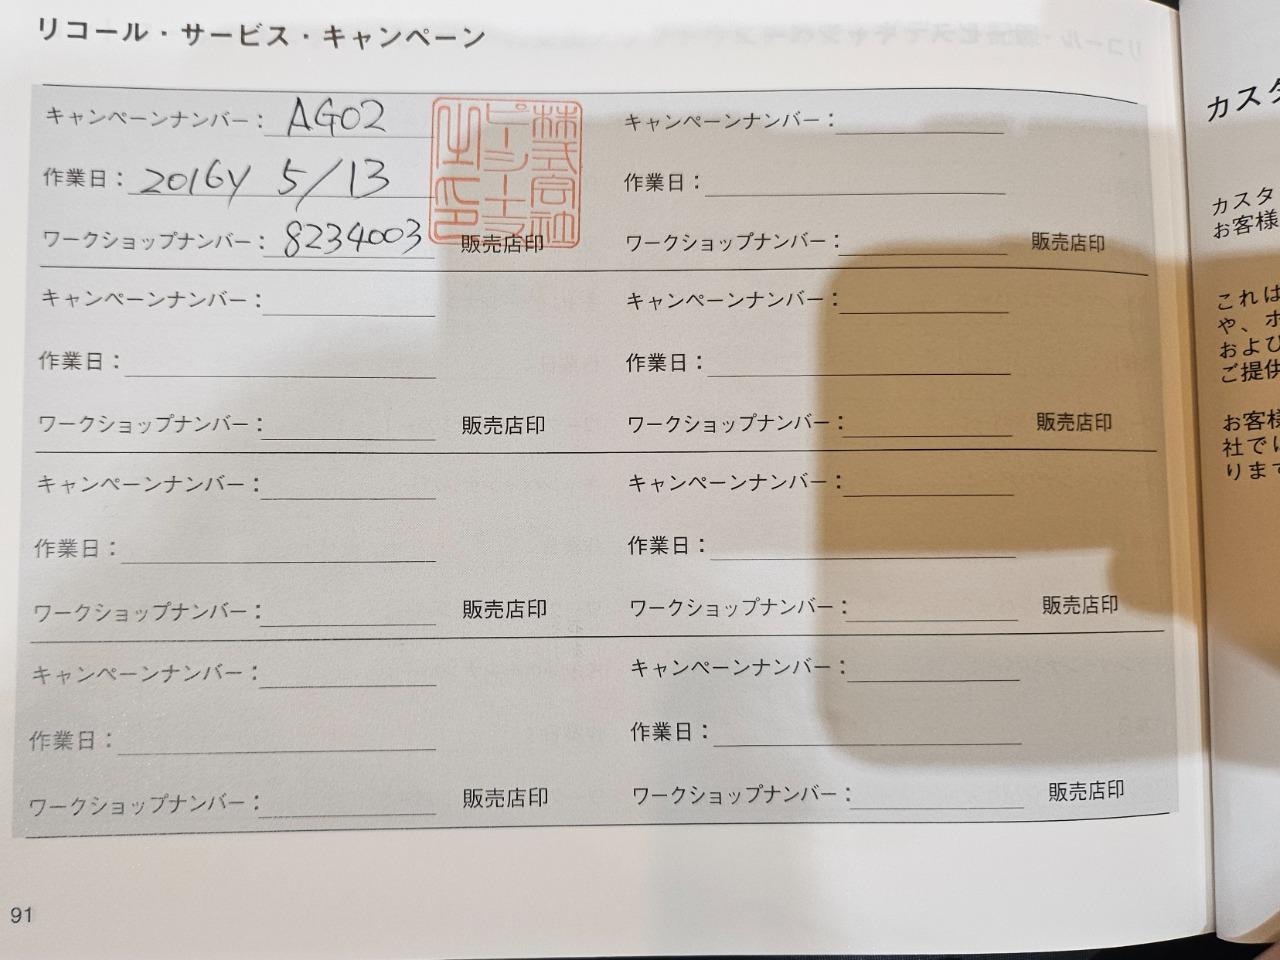 リコール・サービス・キャンペーン
キャンペーンナンバー： AG02
作業日： 2016y 5/13
ワークショップナンバー： 8234003 販売店印
株式会社
之印
キャンペーンナンバー：
作業日：
ワークショップナンバー： 販売店印
キャンペーンナンバー：
作業日：
ワークショップナンバー： 販売店印
キャンペーンナンバー：
作業日：
ワークショップナンバー： 販売店印
キャンペーンナンバー：
作業日：
ワークショップナンバー： 販売店印
キャンペーンナンバー：
作業日：
ワークショップナンバー： 販売店印
キャンペーンナンバー：
作業日：
ワークショップナンバー： 販売店印
キャンペーンナンバー：
作業日：
ワークショップナンバー： 販売店印
91
カスタ
カスタ
お客様
これは
や、ホ
および
ご提供
お客様
社では
ります